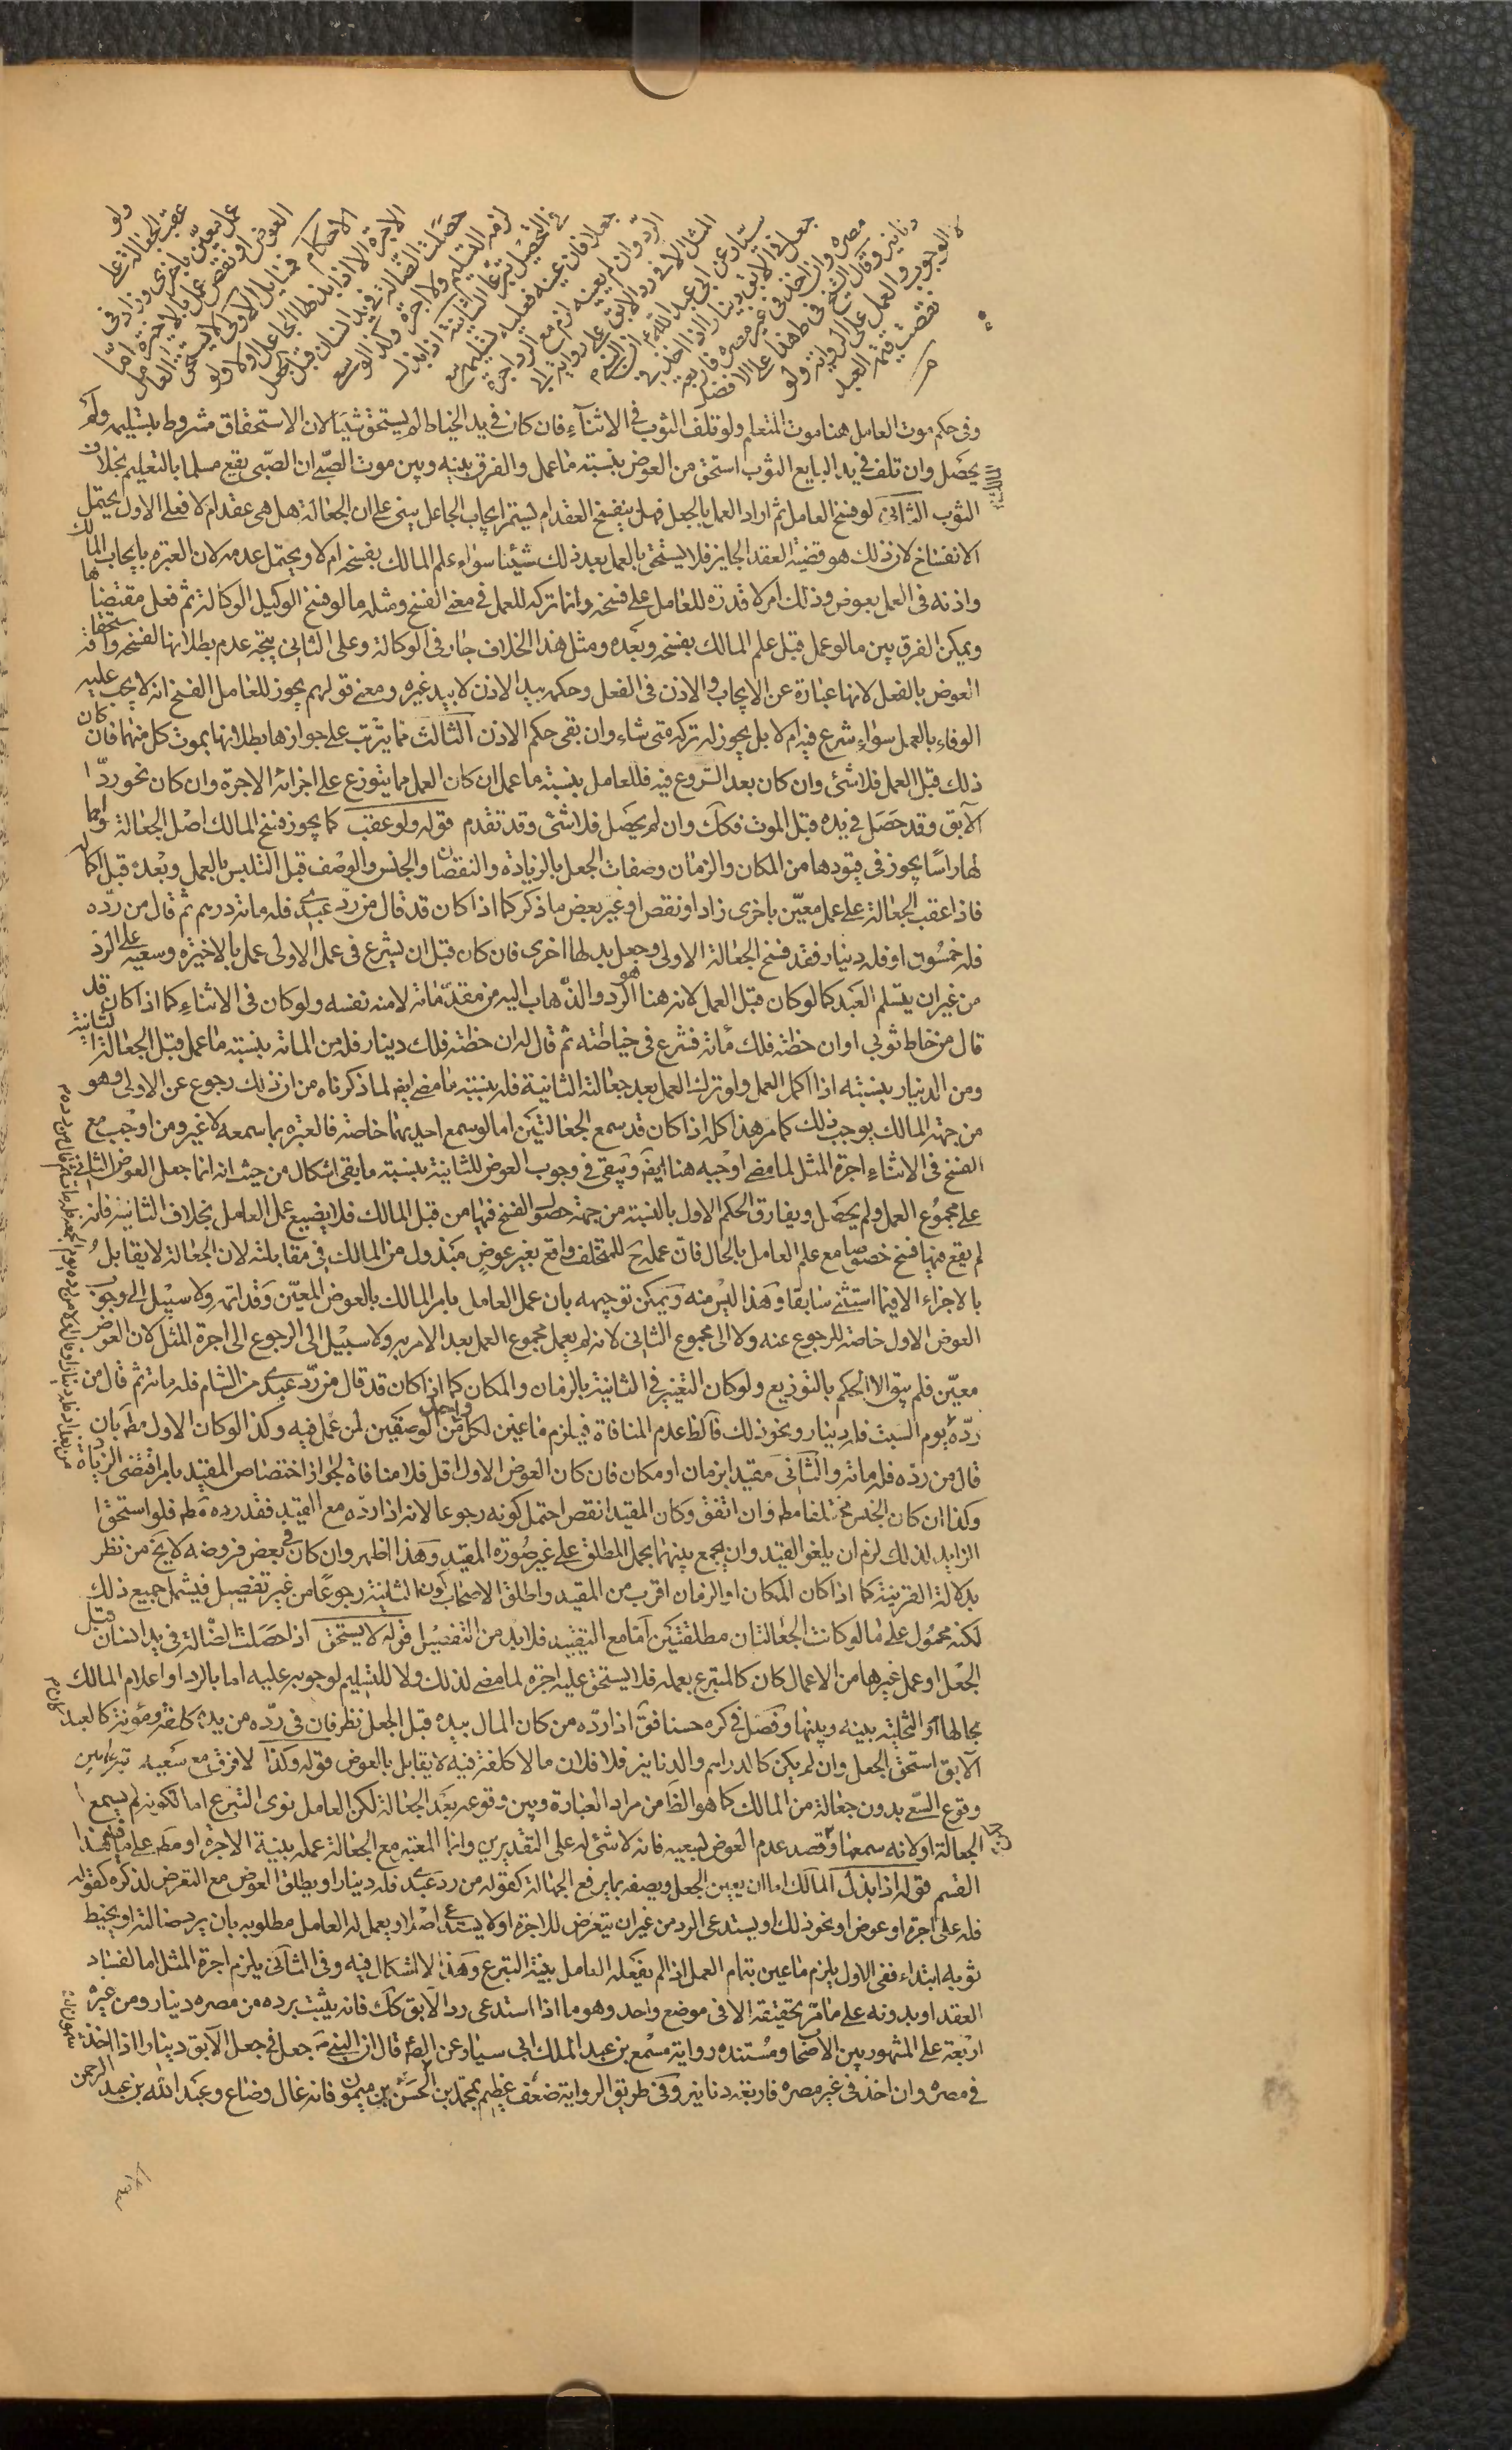 ولو
عقب الجعالة على
عمل معين باخرى وزاد في
العوض او نقص عمل بالاخيرة اما
الاحكام فمسايل الاولى لا يستحق العامل
الاجرة الا اذا بذلها الجاعل اولا ولو
حصلت الضالة في يد انسان قبل الجعل
لزمه التسليم ولا اجرة وكذا لو سعى
في التحصيل تبرعا الثانية اذا بذل
جعلا فان عينه فعليه تسليمه مع
الرد وان لم يعينه لزم مع الرد اجرة
المثل الا في رد الابق على رواية ابي
سيار عن ابي عبد الله ع ان النبي ص
جعل في الابق دينارا اذا اخذ في
مصره وان اخذ في غير مصره فاربعة
دنانير وقال الشيخ في ط هذا على الافضل
لا الوجوب والعمل على الرواية ولو
نقصت قيمة العبد
وفى حكم موت العامل هنا موت المتعلم ولو تلف الثوب فى الاثناء فان كان في يد الخياط لم يستحق شيئا لان الاستحقاق مشروط بتسليمه ولم
يحصل وان تلف في يد البايع الثوب استحق من العوض بنسبته ما عمل والفرق بينه وبين موت الصبى ان الصبى يقع مسلما بالتعليم بخلاف
الثوب الثانى لو فسخ العامل ثم اراد العمل بالجعل فهل ينفسخ العقد ام يستمر ايجاب الجاعل يبنى على ان الجعالة هل هى عقد ام لا فعلى الاول يحتمل
الانفساخ لان ذلك هو قضية العقد الجايز فلا يستحق بالعمل بعد ذلك شيئا سواء علم المالك بفسخه ام لا ويحتمل عدمه لان العبرة بايجاب المالك
واذنه فى العمل بعوض وذلك امر لا قدرة للعامل على فسخه وانما تركه للعمل فى معنى الفسخ ومثله ما لو فسخ الوكيل الوكالة ثم فعل مقتضاها
ويمكن الفرق بين ما لو عمل قبل علم المالك بفسخه وبعده ومثل هذا الخلاف جار فى الوكالة وعلى الثانى يتجه عدم بطلانها بفسخه واستحقاقه
العوض بالفعل لانها عبارة عن الايجاب والاذن فى الفعل وحكمه بيد الاذن لا بيد غيره ومعنى قولهم يجوز للعامل الفسخ انه لا يجب عليه
الوفاء بالعمل سواء شرع فيه ام لا بل يجوز له تركه متى شاء وان بقى حكم الاذن الثالث مما يترتب على جوازها بطلانها بموت كل منهما فان كان
ذلك قبل العمل فلا شئ وان كان بعد الشروع فيه فللعامل بنسبته ما عمل ان كان العمل مما يتوزع على اجزائه الاجرة وان كان نحو رد
الآبق وقد حصل فى يده قبل الموت فكك وان لم يحصل فلا شئ وقد تقدم قوله ولو عقب كما يجوز فسخ المالك اصل الجعالة واهما
لها راسا يجوز فى قيودها من المكان والزمان وصفات الجعل بالزيادة والنقصان والجنس والوصف قبل التلبس بالعمل وبعده قبل اكماله
فاذا عقب الجعالة على عمل معين باخرى زاد او نقص او غير بعض ما ذكر كما اذا كان قد قال من رد عبدى فله مائة درهم ثم قال من رده
فله خمسون او فله دينار فقد فسخ الجعالة الاولى وجعل بدلها اخرى فان كان قبل ان يشرع فى عمل الاولى عمل بالاخيرة وسعيه على الرد
من غير ان يتسلم العبد كما لو كان قبل العمل لانه هنا هو الرد والذهاب اليه من مقدماته لا منه نفسه ولو كان فى الاثناء كما اذا كان قد
قال من خاط ثوبى او ان خطته فلك مائة فشرع فى خياطته ثم قال له ان خطته فلك دينار فله من المائة بنسبته ما عمل قبل الجعالة الثانية
ومن الدينار بنسبته اذا اكمل العمل ولو ترك العمل بعد جعالته الثانية فله بنسبته ما مضى ايض لما ذكرناه من ان ذلك رجوع عن الاولى وهو
من جهة المالك يوجب ذلك كما مر هذا كله اذا كان قد سمع الجعالتين اما لو سمع احديهما خاصة فالعبرة بما سمعه لا غير ومن اوجب مع
الفسخ فى الاثناء اجرة المثل لما مضى اوجبه هنا ايضا ويبقى فى وجوب العوض للثانية بنسبته ما بقى اشكال من حيث انه انما جعل العوض الثانى
على مجموع العمل ولم يحصل ويفارق الحكم الاول بالنسبة من جهة حصول الفسخ فيها من قبل المالك فلا يضيع عمل العامل بخلاف الثانية فانه
لم يقع فيها فسخ خصوصا مع علم العامل بالحال فان عمله ح للمتخلف واقع بغير عوض مبذول من المالك فى مقابلته لان الجعالة لا يقابل
بالاجزاء الا فيما استثنى سابقا وهذا ليس منه ويمكن توجيهه بان عمل العامل بامر المالك بالعوض المعين وقد اتمه ولا سبيل الى وجوب
العوض الاول خاصة للرجوع عنه ولا الى مجموع الثانى لانه لم يعمل مجموع العمل بعد الامر به ولا سبيل الى الرجوع الى اجرة المثل لان العوض
معين فلم يبق الا الحكم بالتوزيع ولو كان التغيير فى الثانية بالزمان والمكان كما اذا كان قد قال من رد عبدى من الشام فله مائة ثم قال من
رده يوم السبت فله دينار ونحو ذلك فالظ عدم المنافاة فيلزم ما عين لكل واحد من الوصفين لمن عمل فيه وكذا لو كان الاول مط بان
قال من رده فله مائة والثانى مقيدا بزمان او مكان فان كان العوض الاول اقل فلا منافاة لجواز اختصاص المقيد بامر اقتضى الزيادة
وكذا ان كان الجنس مختلفا مط وان اتفق وكان المقيد انقص احتمل كونه رجوعا لانه اذا رده مع القيد فقد رده مط فلو استحق
الزايد لذلك لزم ان يلغو القيد وان يجمع بينهما بحمل المطلق على غير صورة المقيد وهذا اظهر وان كان فى بعض فروضه لا يخ من نظر
بدلالة القرينة كما اذا كان المكان او الزمان اقرب من المقيد واطلق الاصحاب كون الثانية رجوعا من غير تفصيل فيشمل جميع ذلك
لكنه محمول على ما لو كانت الجعالتان مطلقتين اما مع التقييد فلا بد من التفصيل قوله لا يستحق اذا حصلت الضالة فى يد انسان قبل
الجعل او عمل غيرها من الاعمال كان كالمتبرع بعمله فلا يستحق عليه اجرة لما مضى لذلك ولا للتسليم لوجوبه عليه اما بالرد او اعلام المالك
بحالها او التخلية بينه وبينها وفصل فى كره حسنا فق اذا رده من كان المال بيده قبل الجعل نظر فان فى رده من يده كلفة ومؤنة كالعبد
الآبق استحق الجعل وان لم يكن كالدراهم والدنانير فلا فلان ما لا كلفة فيه لا يقابل بالعوض قوله وكذا لا فرق مع سعيه تبرعا بين
وقوع السعى بدون جعالة من المالك كما هو الظ من مراد العبارة وبين وقوعه بعد الجعالة لكن العامل نوى التبرع اما لكونه لم يسمع
الجعالة او لانه سمعها وقصد عدم العوض لسعيه فانه لا شئ له على التقديرين وانما المعتبر مع الجعالة عمله بنية الاجرة او مط على ما فيه هذا
القسم قوله اذا بذل المالك اما ان يعين الجعل ويصفه بما يرفع الجهالة كقوله من رد عبدى فله دينار او يطلق العوض مع التعرض لذكره كقوله
فله على اجرة او عوض او نحو ذلك او يستدعى الرد من غير ان يتعرض للاجرة او لا يستدعى اصلا او يعمل له العامل مطلوبه بان يرد ضالته او يخيط
ثوبه ابتداء ففى الاول يلزم ما عين بتمام العمل اذا لم يفعله العامل بنية التبرع وهذا لا اشكال فيه وفى الثانى يلزم اجرة المثل اما لفساد
العقد او بدونه على ما مر تحقيقه الا فى موضع واحد وهو ما اذا استدعى رد الآبق كك فانه يثبت برده من مصره دينار ومن غيره
اربعة على المشهور بين الاصحاب ومستنده رواية مسمع بن عبد الملك ابى سيار عن الص قال ان النبى ص جعل فى جعل الآبق دينارا اذا اخذ
فى مصره وان اخذ فى غير مصره فاربعة دنانير وفى طريق الرواية ضعف عظيم بمحمد بن الحسن بن ميمون فانه غال وضاع وعبد الله بن عبد الرحمن